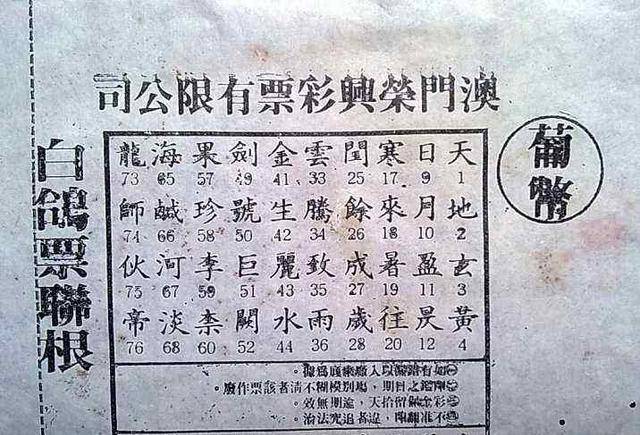 澳門榮興彩票有限公司
葡幣
天 日 寒 閏 雲 金 劍 果 海 龍
1 9 17 25 33 41 49 57 65 73
地 月 來 餘 騰 生 號 珍 鹹 師
2 10 18 26 34 42 50 58 66 74
玄 盈 暑 成 致 麗 巨 李 河 伙
3 11 19 27 35 43 51 59 67 75
黃 昃 往 歲 雨 水 闕 柰 淡 帝
4 12 20 28 36 44 52 60 68 76
如有錯漏以入廠票底爲據。
之日期，場別模糊不清者該票作廢。
彩金保留拾天，逾期無效。
不准翻印，違者追究法治。
白鴿票聯根